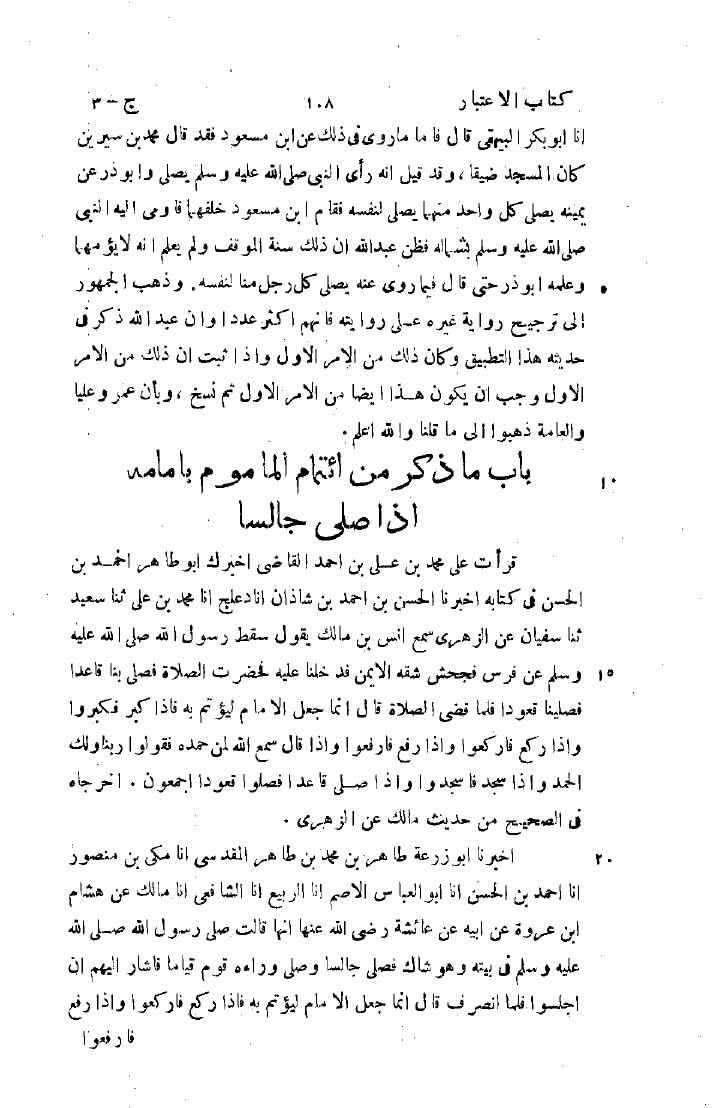 كتاب الاعتبار ١٠٨ ج - ٣
انا ابو بكر البيهقى قال فا ما ماروى فى ذلك عن ابن مسعود فقد قال محمد بن سيرين
كان المسجد ضيقا ، وقد قيل انه رأى النبى صلى الله عليه وسلم يصلى وابوذر عن
يمينه يصلى كل واحد منهما يصلى لنفسه فقام ابن مسعود خلفهما فاومى اليه النبى
صلى الله عليه وسلم بشماله فظن عبدالله ان ذلك سنة الموقف ولم يعلم انه لايؤمهما
وعلمه ابوذر حتى قال فيما روى عنه يصلى كل رجل منا لنفسه. وذهب الجمهور ٥
الى ترجيح رواية غيره على روايته فانهم اكثر عددا وان عبد الله ذكر فى
حديثه هذا التطبيق وكان ذلك من الامر الاول واذا ثبت ان ذلك من الامر
الاول وجب ان يكون هذا ايضا من الامر الاول ثم نسخ ، وبأن عمر وعليا
والعامة ذهبوا الى ما قلنا والله اعلم .
باب ما ذكر من ائتمام الماموم بامامه ١٠
اذا صلى جالسا
قرأت على محمد بن على بن احمد القاضى اخبرك ابو طاهر احمد بن
الحسن فى كتابه اخبرنا الحسن بن احمد بن شاذان انا دعلج انا محمد بن على ثنا سعيد
ثنا سفيان عن الزهرى سمع انس بن مالك يقول سقط رسول الله صلى الله عليه
وسلم عن فرس فجحش شقه الايمن فدخلنا عليه فحضرت الصلاة فصلى بنا قاعدا ١٥
فصلينا قعودا فلما قضى الصلاة قال انما جعل الامام ليؤتم به فاذا كبر فكبروا
واذا ركع فاركعوا واذا رفع فارفعوا واذا قال سمع الله لمن حمده فقولوا ربنا ولك
الحمد واذا سجد فاسجدوا واذا صلى قاعدا فصلوا قعودا اجمعون . اخرجاه
فى الصحيح من حديث مالك عن الزهرى .
اخبرنا ابو زرعة طاهر بن محمد بن طاهر المقدسى انا مكى بن منصور ٢٠
انا احمد بن الحسن انا ابو العباس الاصم انا الربيع انا الشافعى انا مالك عن هشام
ابن عروة عن ابيه عن عائشة رضى الله عنها انها قالت صلى رسول الله صلى الله
عليه وسلم فى بيته وهو شاك فصلى جالسا وصلى وراءه قوم قياما فاشار اليهم ان
اجلسوا فلما انصرف قال انما جعل الامام ليؤتم به فاذا ركع فاركعوا واذا رفع
فارفعوا